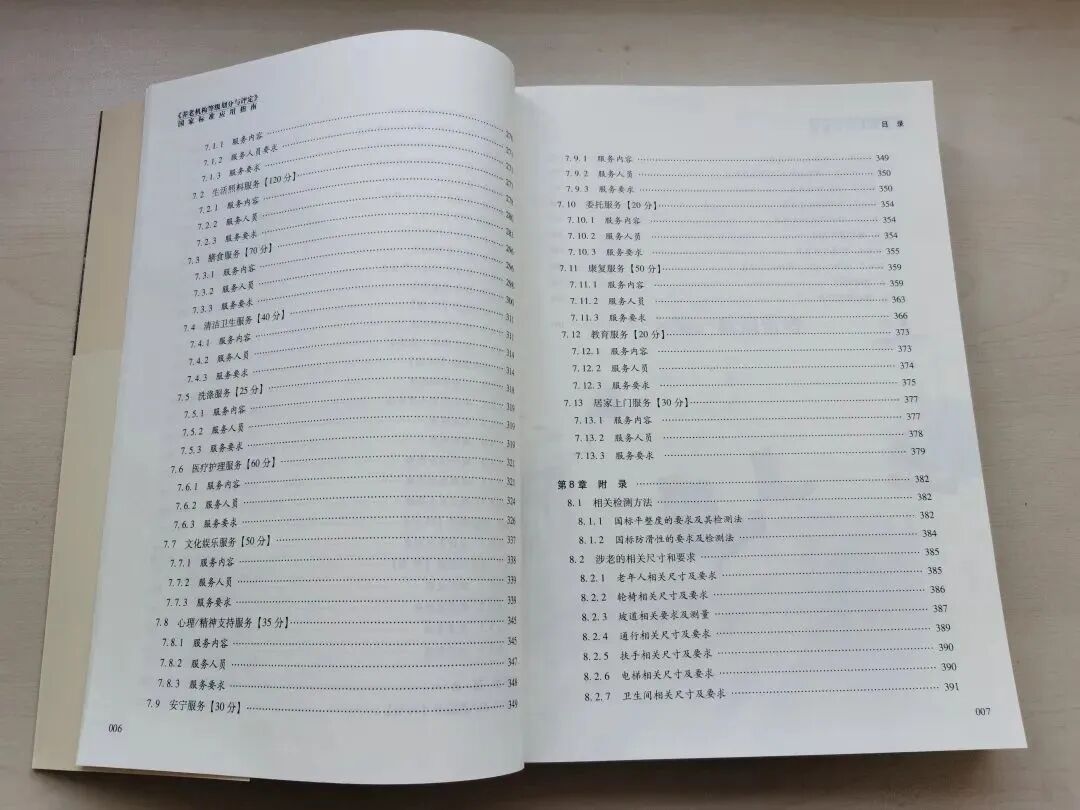 《养老机构等级划分与评定》
国家标准应用指南
7.1.1 服务内容 270
7.1.2 服务人员要求 271
7.1.3 服务要求 271
7.2 生活照料服务【120分】 271
7.2.1 服务内容 276
7.2.2 服务人员 281
7.2.3 服务要求 281
7.3 膳食服务【70分】 296
7.3.1 服务内容 296
7.3.2 服务人员 298
7.3.3 服务要求 300
7.4 清洁卫生服务【40分】 311
7.4.1 服务内容 311
7.4.2 服务人员 314
7.4.3 服务要求 314
7.5 洗涤服务【25分】 318
7.5.1 服务内容 319
7.5.2 服务人员 319
7.5.3 服务要求 319
7.6 医疗护理服务【60分】 321
7.6.1 服务内容 321
7.6.2 服务人员 324
7.6.3 服务要求 326
7.7 文化娱乐服务【50分】 337
7.7.1 服务内容 338
7.7.2 服务人员 339
7.7.3 服务要求 339
7.8 心理/精神支持服务【35分】 345
7.8.1 服务内容 345
7.8.2 服务人员 347
7.8.3 服务要求 348
7.9 安宁服务【30分】 349
006
目 录
7.9.1 服务内容 349
7.9.2 服务人员 350
7.9.3 服务要求 350
7.10 委托服务【20分】 354
7.10.1 服务内容 354
7.10.2 服务人员 354
7.10.3 服务要求 355
7.11 康复服务【50分】 359
7.11.1 服务内容 359
7.11.2 服务人员 363
7.11.3 服务要求 366
7.12 教育服务【20分】 373
7.12.1 服务内容 373
7.12.2 服务人员 374
7.12.3 服务要求 375
7.13 居家上门服务【30分】 377
7.13.1 服务内容 377
7.13.2 服务人员 378
7.13.3 服务要求 379
第8章 附 录 382
8.1 相关检测方法 382
8.1.1 国标平整度的要求及其检测法 382
8.1.2 国标防滑性的要求及检测法 384
8.2 涉老的相关尺寸和要求 385
8.2.1 老年人相关尺寸及要求 385
8.2.2 轮椅相关尺寸及要求 386
8.2.3 坡道相关要求及测量 387
8.2.4 通行相关尺寸及要求 389
8.2.5 扶手相关尺寸及要求 390
8.2.6 电梯相关尺寸及要求 390
8.2.7 卫生间相关尺寸及要求 391
007